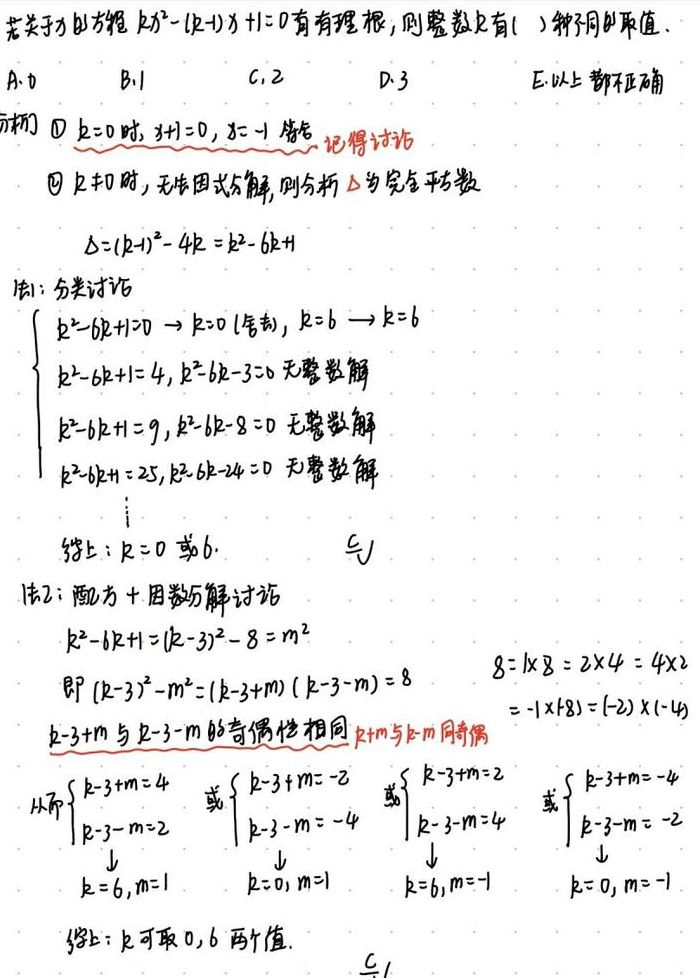 若关于x的方程 kx²-(k-1)x+1=0有有理根,则整数k有( )种不同的取值.
A.0 B.1 C.2 D.3 E.以上都不正确
分析] ① k=0时, x+1=0, x=-1 符合 记得讨论
② k≠0时, 无法因式分解, 则分析 Δ为完全平方数
Δ=(k-1)²-4k=k²-6k+1
法1: 分类讨论
k²-6k+1=0 → k=0(舍去), k=6 → k=6
k²-6k+1=4, k²-6k-3=0 无整数解
k²-6k+1=9, k²-6k-8=0 无整数解
k²-6k+1=25, k²-6k-24=0 无整数解
⋮
综上: k=0 或6. C
法2: 配方+因数分解讨论
k²-6k+1=(k-3)²-8=m²
即 (k-3)²-m²=(k-3+m)(k-3-m)=8
8=1×8=2×4=4×2
=-1×(-8)=(-2)×(-4)
k-3+m 与 k-3-m 的奇偶性相同 k+m与k-m同奇偶
从而 { k-3+m=4 或 { k-3+m=-2 或 { k-3+m=2 或 { k-3+m=-4
k-3-m=2 k-3-m=-4 k-3-m=4 k-3-m=-2
↓ ↓ ↓ ↓
k=6, m=1 k=0, m=1 k=6, m=-1 k=0, m=-1
综上: k可取0,6 两个值.
C